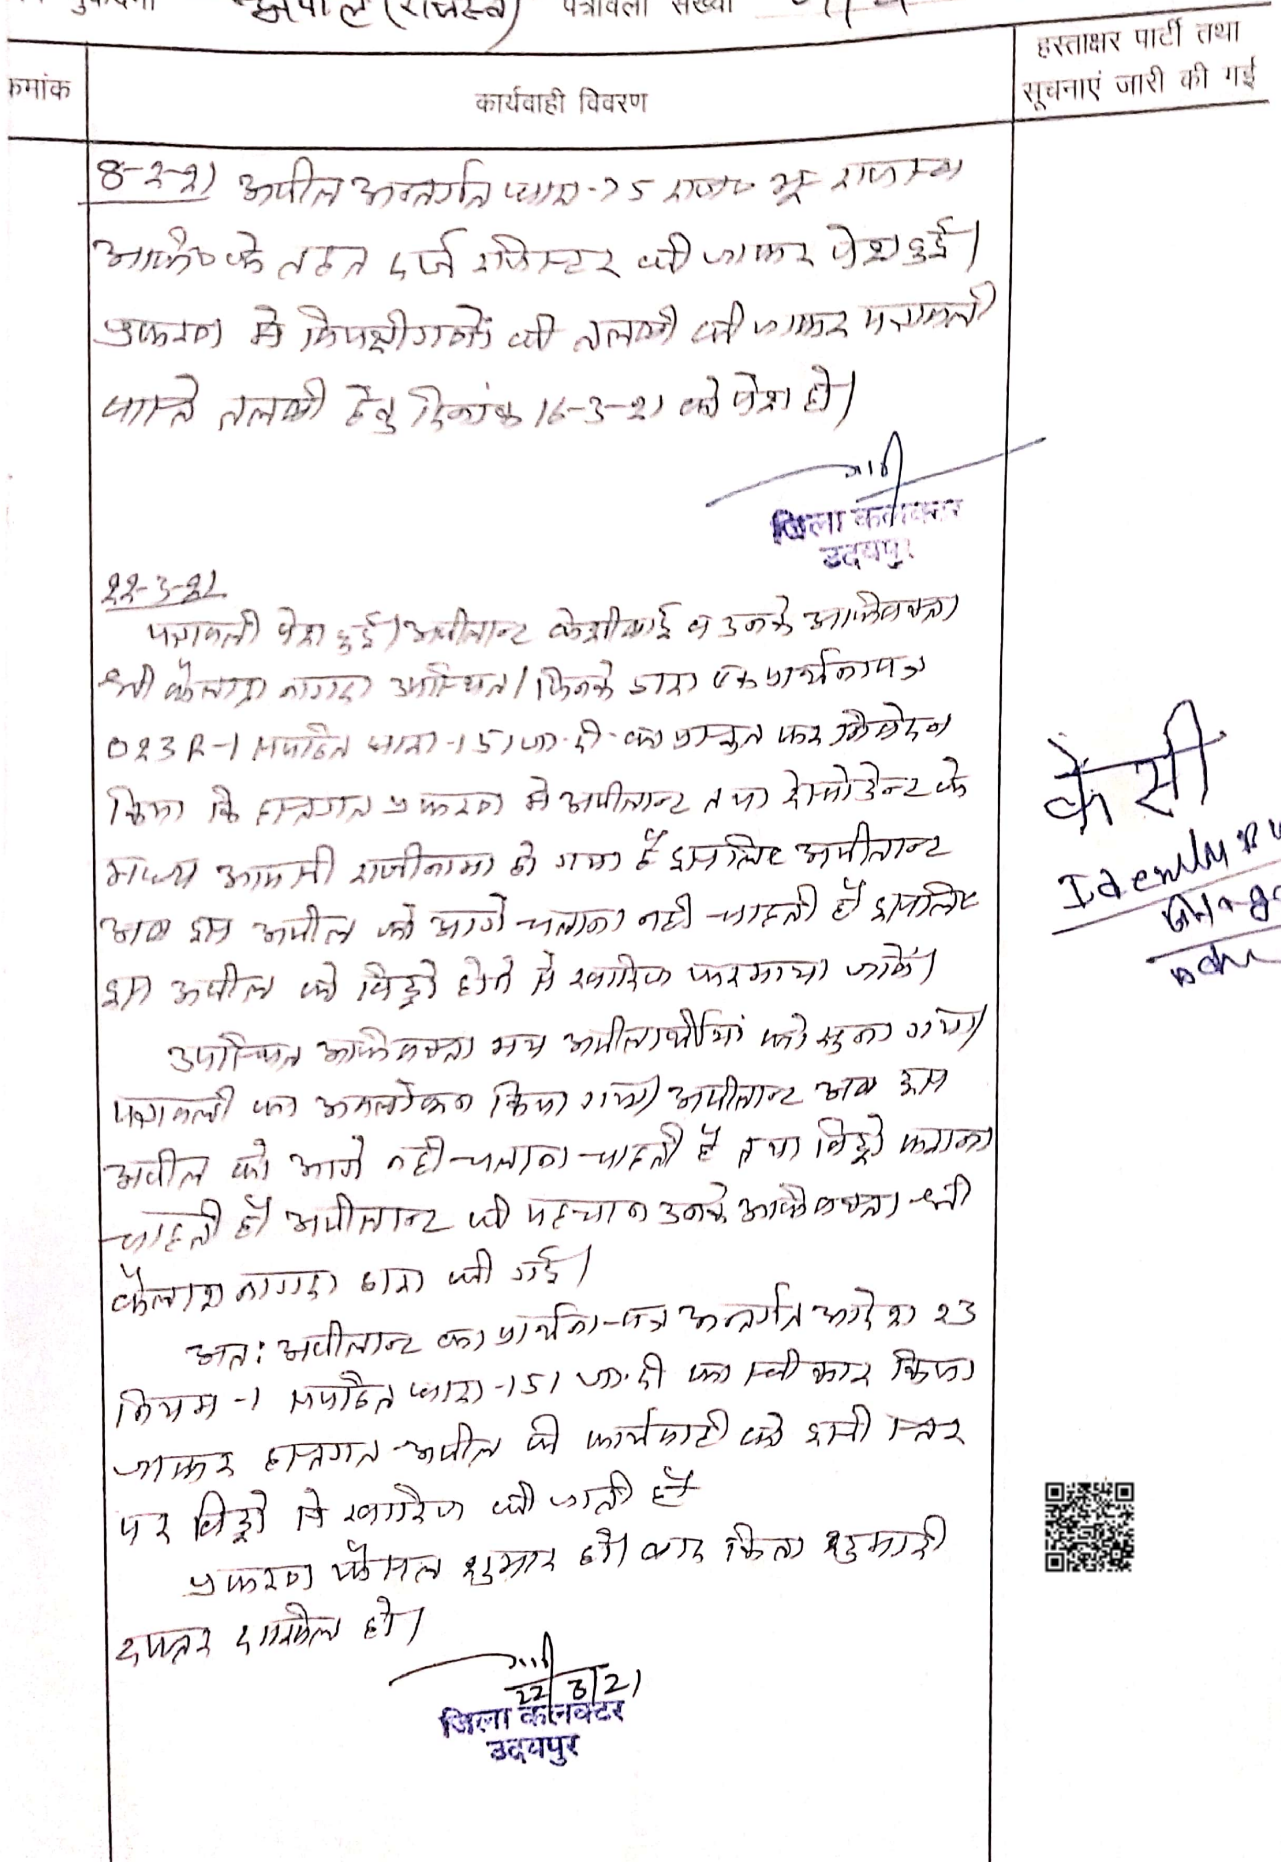 अपील (राजस्व) पत्रावली संख्या
क्रमांक
कार्यवाही विवरण
हस्ताक्षर पार्टी तथा
सूचनाएं जारी की गई
8-2-21 अपील अन्तर्गत धारा-75 राज० भू राजस्व
अधि० के तहत दर्ज रजिस्टर की जाकर पेश हुई।
प्रकरण में विपक्षीगणों की तलबी की जाकर पत्रावली
वास्ते तलबी हेतु दिनांक 16-3-21 को पेश हो।
जिला कलक्टर
उदयपुर
22-3-21
पत्रावली पेश हुई। अपीलान्ट केसीबाई व उनके अधिवक्ता
श्री कैलाश नागदा उपस्थित। जिनके द्वारा एक प्रार्थनापत्र
O23R-1 सपठित धारा-151 जा.दी. का प्रस्तुत कर निवेदन
किया कि हस्तगत प्रकरण में अपीलान्ट तथा रेस्पोडेन्ट के
मध्य आपसी राजीनामा हो गया है इसलिए अपीलान्ट
अब इस अपील को आगे चलाना नही चाहती है इसलिए
इस अपील को विड्रो होने से खारिज फरमाया जावें।
उपस्थित अधिवक्ता मय अपीलार्थीयां को सुना गया।
पत्रावली का अवलोकन किया गया। अपीलान्ट अब इस
अपील को आगे नही चलाना चाहती है तथा विड्रो कराना
चाहती है। अपीलान्ट की पहचान उनके अधिवक्ता श्री
कैलाश नागदा द्वारा की गई।
अत: अपीलान्ट का प्रार्थना-पत्र अन्तर्गत आदेश 23
नियम-1 सपठित धारा-151 जा.दी का स्वीकार किया
जाकर हस्तगत अपील की कार्यवाही को इसी स्तर
पर विड्रो से खारिज की जाती है।
प्रकरण फैसल शुमार हो। बाद किता शुमारी
दफ्तर दाखिल हो।
22/3/21
जिला कलक्टर
उदयपुर
केसी